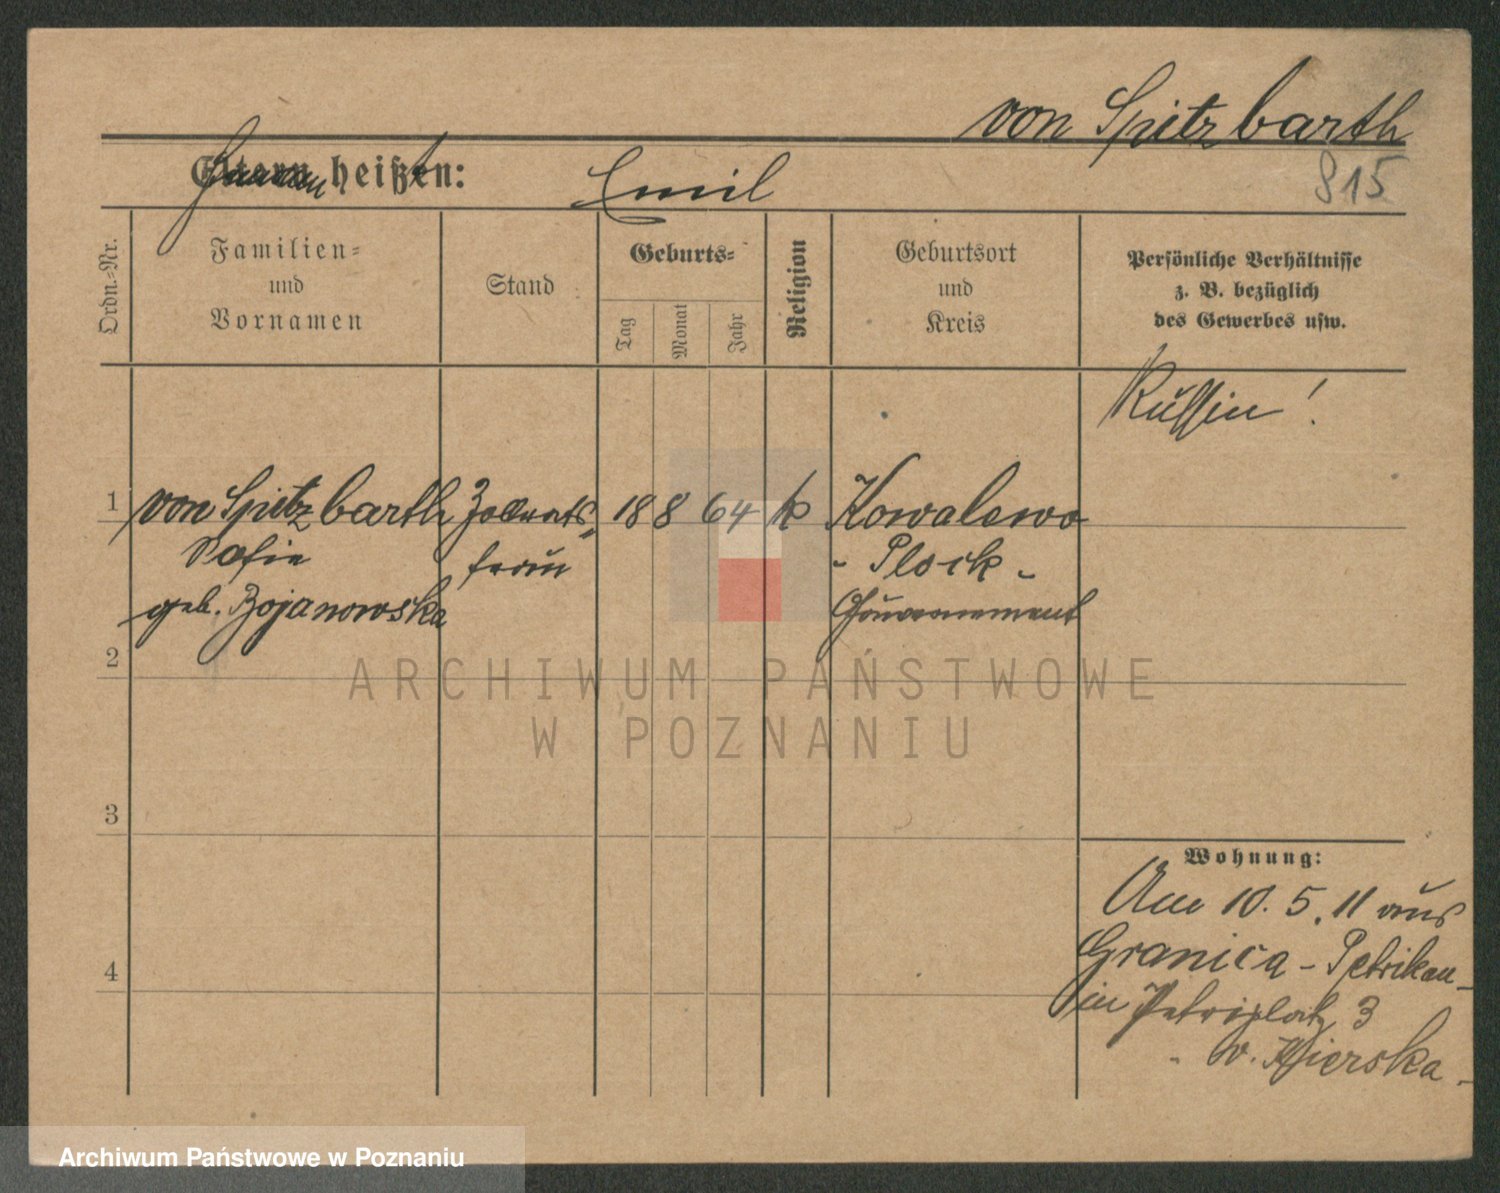 von Spitzbarth
815
Eltern heißen:
Emil
Ordn.-Nr.
Familien-
und
Vornamen
Stand
Geburts-
Tag
Monat
Jahr
Religion
Geburtsort
und
Kreis
Persönliche Verhältnisse
z. B. bezüglich
des Gewerbes usw.
Russin!
1 von Spitzbarth Zollrats- 18 8 64 k Kowalewo
Sofie frau - Plock -
geb. Bojanowska Gouvernement
2
3
4
Wohnung:
Am 10. 5. 11 aus
Granica - Petrikau -
in Petriplatz 3
- v.
ARCHIWUM PAŃSTWOWE
W POZNANIU
Archiwum Państwowe w Poznaniu